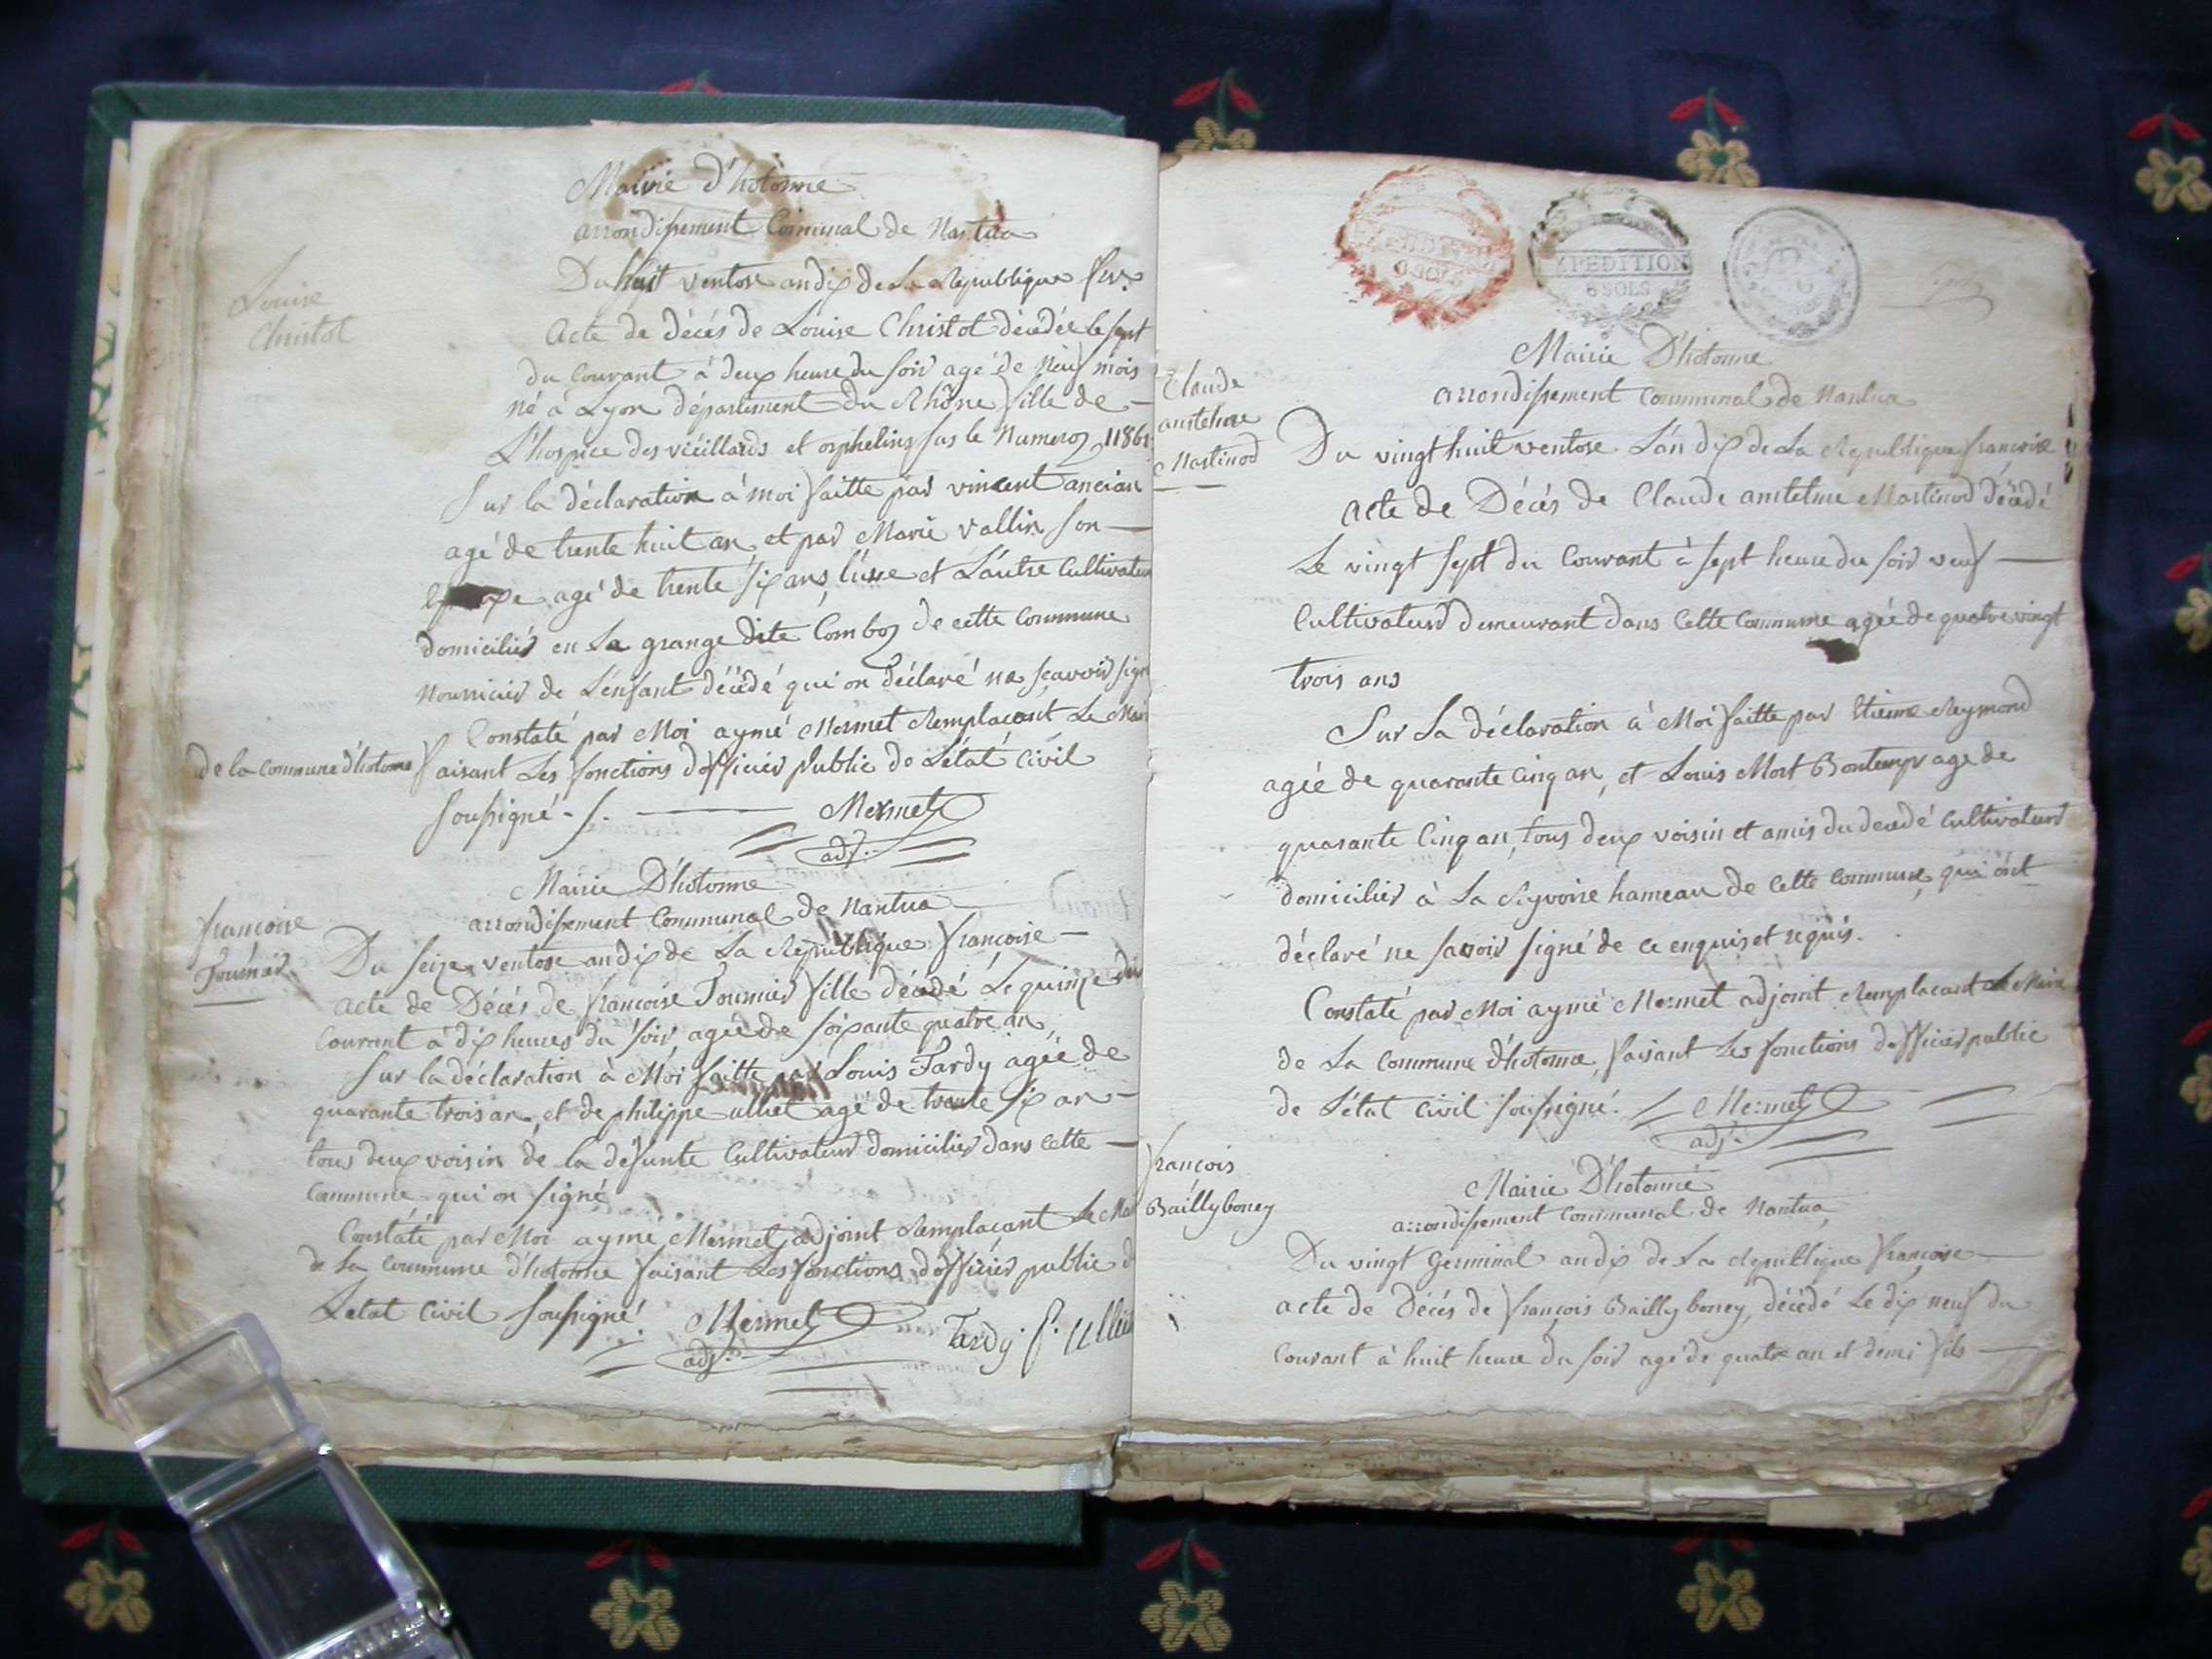 Louise
Christot
Mairie d'hotonne
arrondissement Communal de Nantua
Du huit ventose an dix de La Republique
Acte de décés de Louise Christot décédée le sept
du Courant à deux heure du soir agé de neuf mois
né à Lyon département du Rhône fille de
L'hospice des viéillards et orphelins sus le Numero 1186
Sur la déclaration à moi faitte par vincent ancian
agé de trente huit an et par Marie vallin son
agé de trente six ans, l'une et L'autre Cultivateu
domiciliés en La grange dite Comboz de cette commune
nourricier de L'enfant décédé qui on déclaré ne sçavoir sign
Constaté par Moi aymé Mermet Remplaçant Le Mair
de la commune d'hotonne faisant Les fonctions d'officier Public de L'état Civil
soussigné
Mermet
adj.
françoise
Fournier
Mairie D'hotonne
arrondissement Communal de Nantua
Du seize ventose an dix de La Republique françoise
acte de Décés de françoise Fournier fille décédé Le quinze du
Courant à dix heures du soir agée de soixante quatre an
Sur la déclaration à Moi faitte par Louis Tardy agée de
quarante trois an, et de philippe ulliet agé de trante six an
tous deux voisin de la défunte Cultivateur domicilier dans Cette
Commune qui on signé
Constaté par Moi aymé Mermet adjoint Remplaçant Le Mai
de La Commune d'hotonne faisant Les fonctions d'officier public d
L'etat Civil soussigné
Mermet
adj.
Tardy P. Ulliet
EXPEDITION
6 SOLS
Claude
anstelme
Martinod
Mairie D'hotonne
arrondissement Communal de Nantua
Du vingt huit ventose L'an dix de La Republique françoise
Acte de Décés de Claude anstelme Martinod décédé
Le vingt sept du Courant à sept heure du soir veuf
Cultivateur demeurant dans Cette Commune agée de quatre vingt
trois ans
Sur La déclaration à Moi faitte par Etienne Reymond
agée de quarante Cinq an, et Louis Mort Bontemps age de
quarante Cinq an, tous deux voisin et amis du decédé Cultivateur
domicilier à La Rivoire hameau de Cette Commune, qui ont
déclaré ne savoir signé de ce enquis et requis.
Constaté par Moi aymé Mermet adjoint Remplacant Le Maire
de La Commune d'hotonne, faisant Les fonctions d'officier public
de L'état Civil soussigné.
Mermet
adj.
françois
Bailly boney
Mairie D'hotonne
arrondissement Communal de Nantua
Du vingt Germinal an dix de La Republique françoise
acte de Décés de françois Bailly boney, décédé Le dix neuf du
Courant à huit heure du soir agé de quatre an et demi fils